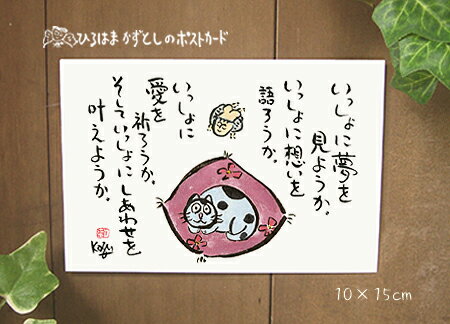 ひろはま かずとしのポストカード
いっしょに夢を
見ようか。
いっしょに想いを
語ろうか。
いっしょに
愛を
祈ろうか。
そしていっしょにしあわせを
叶えようか。
10×15cm